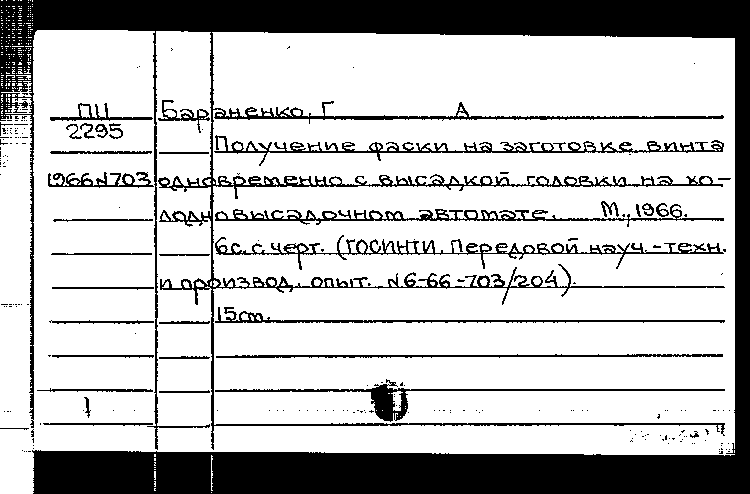 ПЦ Бараненко, Г А
2295
Получение фаски на заготовке винта
1966 N703 одновременно с высадкой головки на хо-
лодновысадочном автомате. М., 1966.
6с. с черт. (ГОСИНТИ. Передовой науч.-техн.
и производ. опыт. N6-66-703/204).
15cm.
1